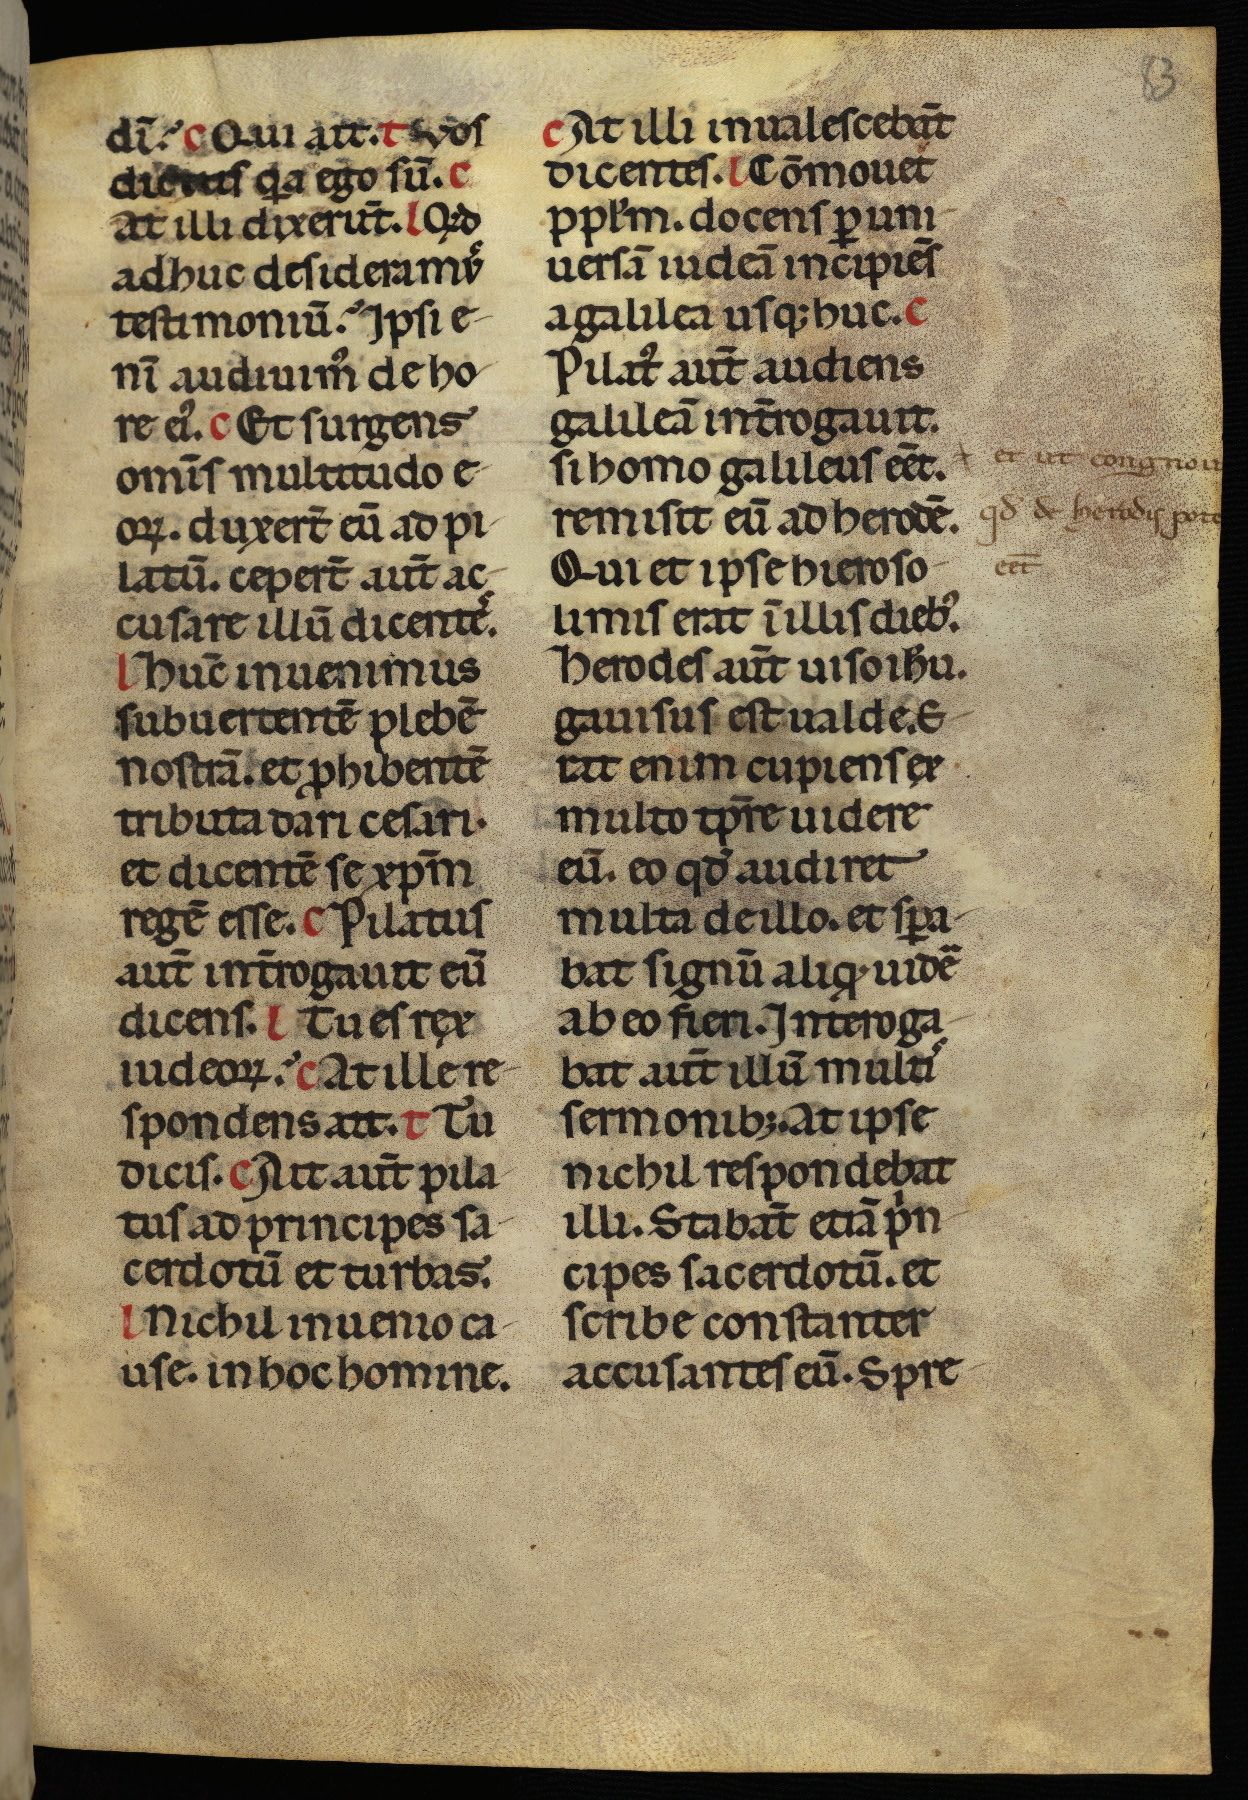 di̅.ˀ c Qui ait. t vos
dicitis qꝛa ego su̅. c
At illi dixeru̅t. l Qꝛd
adhuc desideramꝰ
testimoniu̅.ˀ Ipsi e-
ni̅ audiuimꝰ de ho-
re eiꝰ. c Et surgens
omi̅s multitudo e-
oꝝ. duxer̅t eu̅ ad pi-
latu̅. ceper̅t aut̅ ac-
cusare illu̅ dicentes.
l hu̅c inuenimus
subuertente̅ plebe̅
nostra̅. et ꝓhibente̅
tributa dari cesari.
et dicente̅ se xp̅m
rege̅ esse. c Pilatus
aut̅ int̅rogauit eu̅
dicens. l Tu es rex
iudeoꝝ.ˀ c At ille re-
spondens ait. t Tu
dicis. c Ait aut̅ pila-
tus ad principes sa-
cerdotu̅ et turbas.
l Nichil inuenio ca-
use. in hoc homine.
c At illi inualesceba̅t
dicentes. l Co̅mouet
ppl̅m. docens ꝑ uni-
uersa̅ iudea̅ incipie̅s
a galilea usqꝫ huc. c
Pilatꝰ aut̅ audiens
galilea̅ int̅rogauit.
si homo galileus e̅et.
remisit eu̅ ad herode̅.
Qui et ipse hieroso-
limis erat i̅ illis diebꝰ.
herodes aut̅ uiso ih̅u.
gauisus est ualde. E-
rat enim cupiens ex
multo tp̅re uidere
eu̅. eo qd̅ audiret
multa de illo. et sꝑa-
bat signu̅ aliqꝋ uide̅
ab eo fieri. Interoga-
bat aut̅ illu̅ multis
sermonibꝫ. At ipse
nichil respondebat
illi. Staba̅t etia̅ pͥn-
cipes sacerdotu̅. et
scribe constanter
accusantes eu̅. Spre-
et ut congnouit
qd̅ de herodis pote
e̅et
83